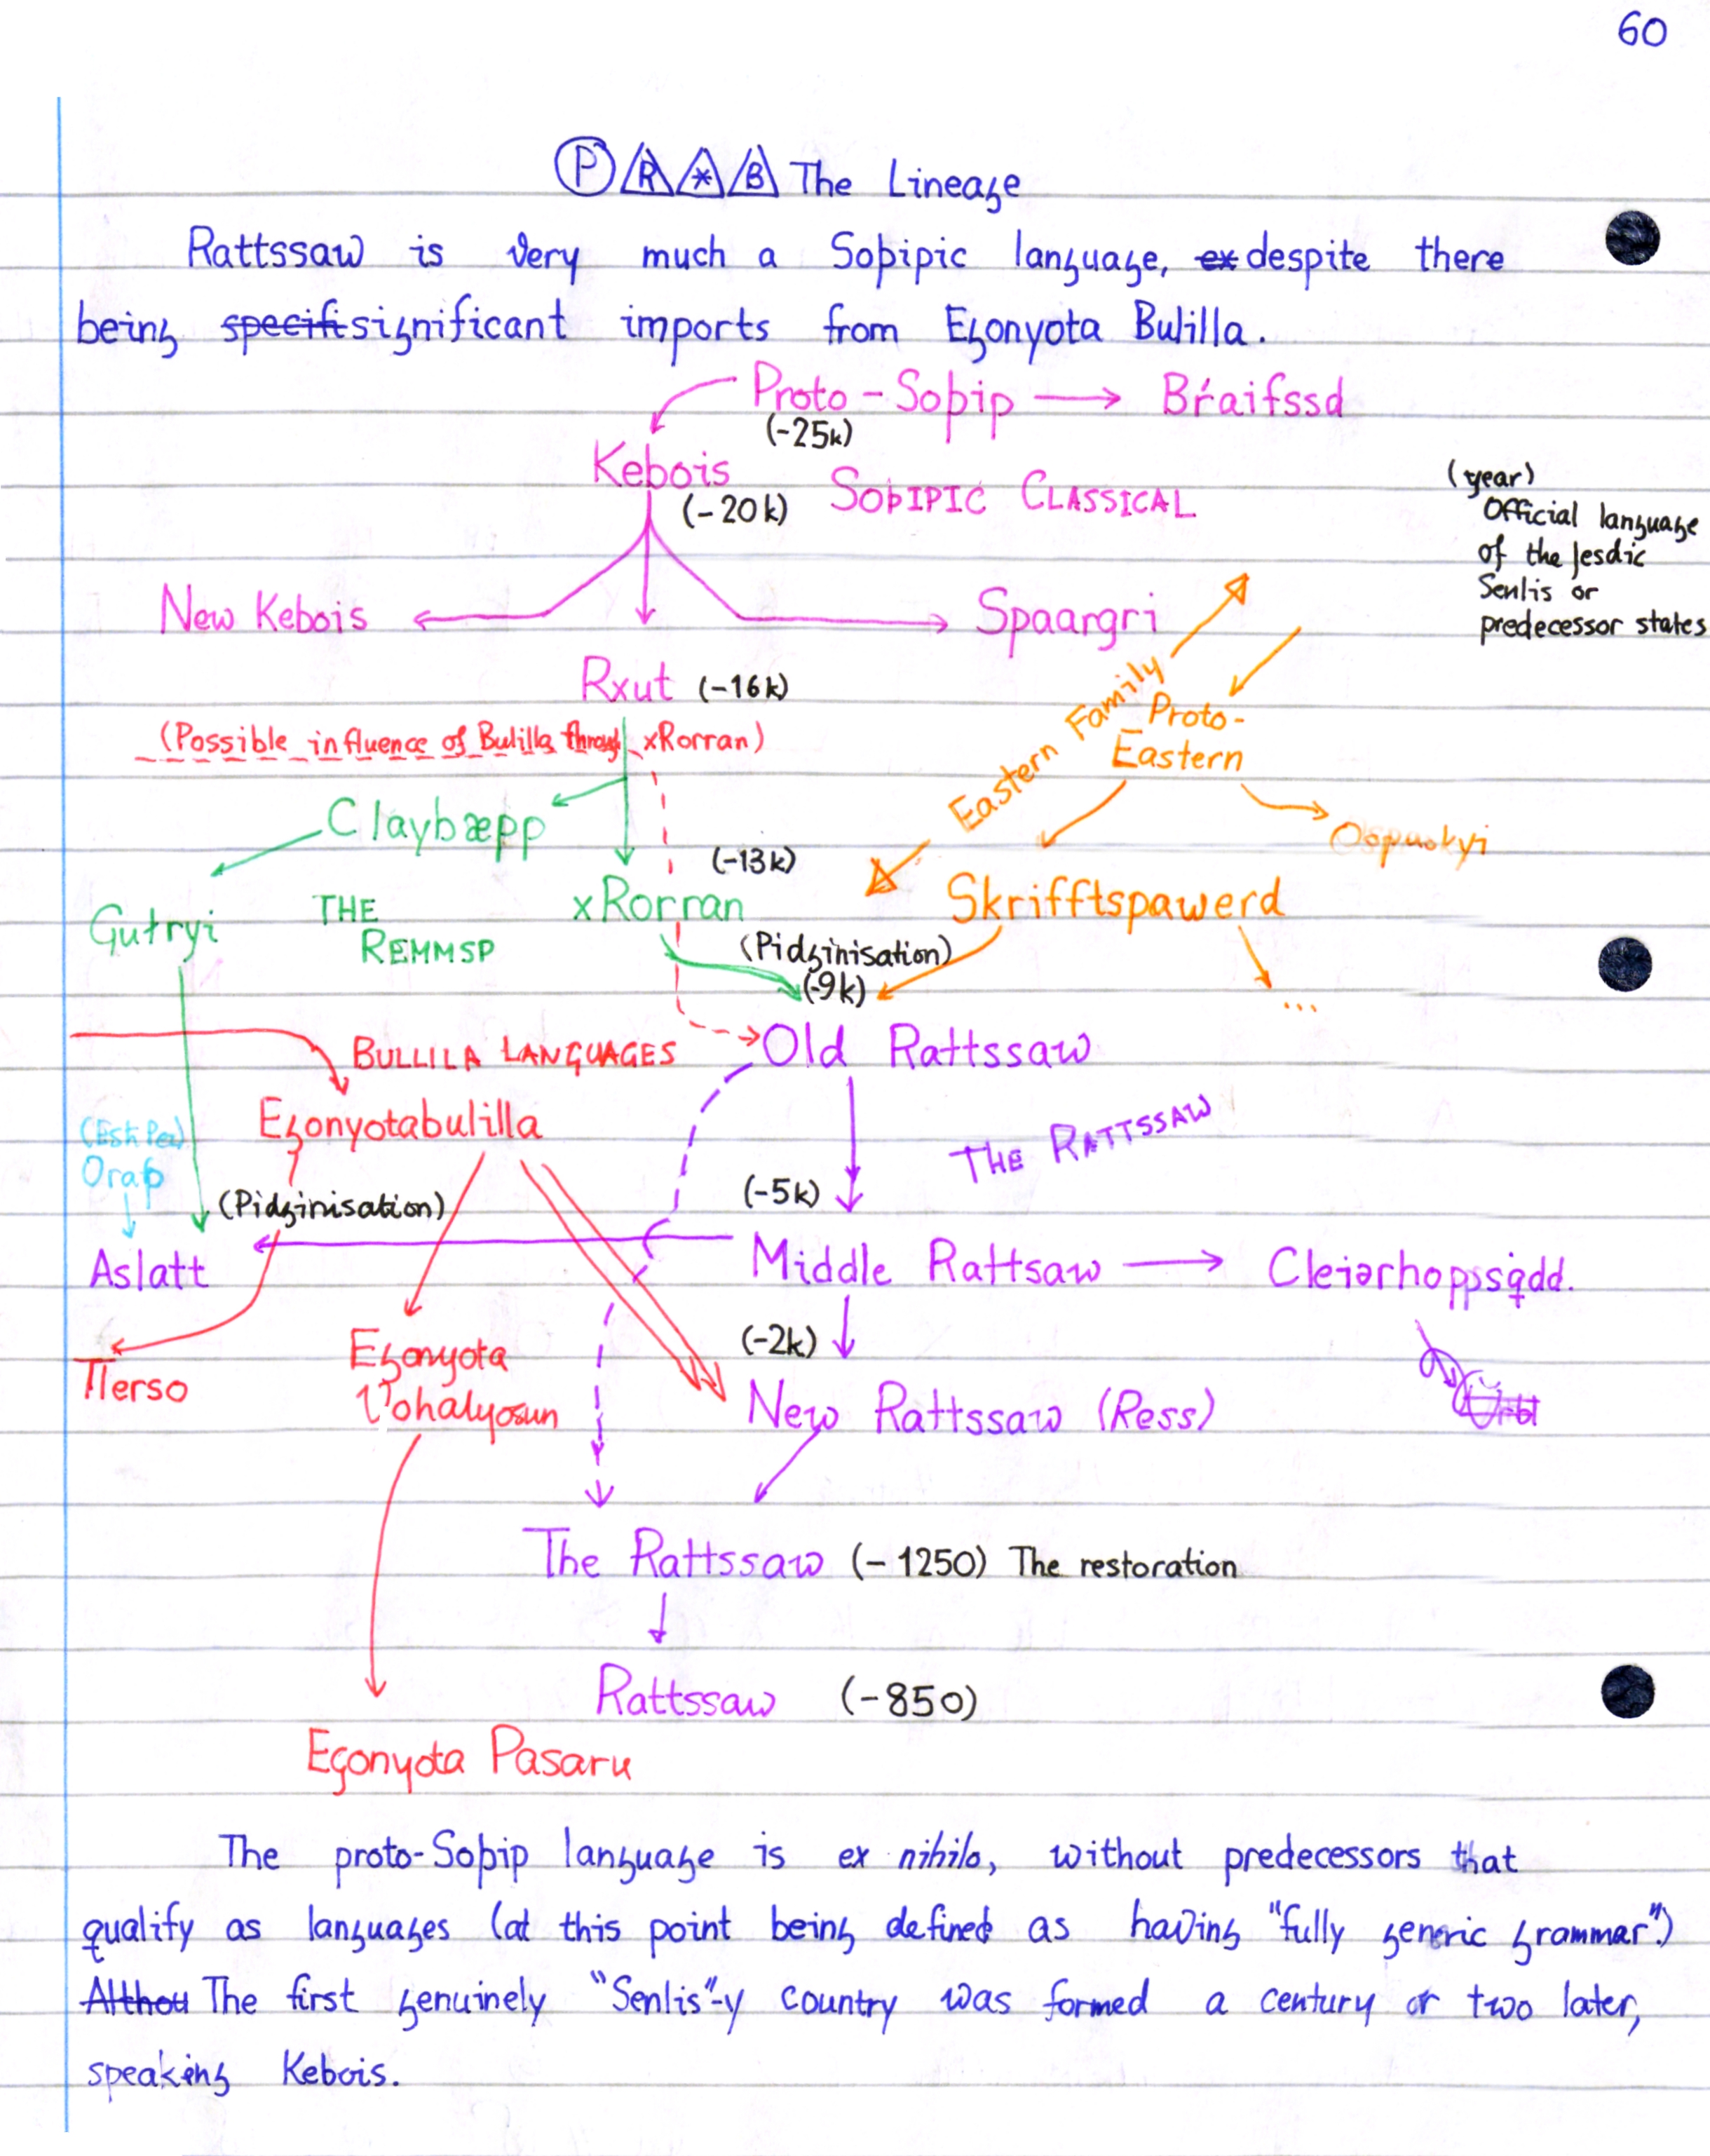 60
P R * B The Lineage
Rattssaw is very much a Soþipic language, ex despite there
being specifi significant imports from Egonyota Bulilla.
Proto-Soþip → Bŕaifssd
(-25k)
Kebois
(-20k)
SOÞIPIC CLASSICAL
(year)
Official language
of the Jesdic
Senlis or
predecessor states
New Kebois
Spaargri
Rxut (-16k)
(Possible influence of Bulilla through xRorran)
Eastern Family
Proto-
Eastern
Claybæpp
(-13k)
Gutryi
THE
REMMSP
xRorran
Skrifftspawerd
(Pidginisation)
(-9k)
...
BULLILA LANGUAGES
Old Rattssaw
Egonyotabulilla
THE RATTSSAW
(-5k)
(Pidginisation)
Aslatt
Middle Rattsaw → Cleiərhoppsq̇dd.
(-2k)
Tlerso
Egonyota
Vohalyosun
New Rattssaw (Ress)
The Rattssaw (-1250) The restoration
Rattssaw (-850)
Egonyota Pasaru
The proto-Soþip language is ex nihilo, without predecessors that
qualify as languages (at this point being defined as having "fully generic grammar".)
Althou The first genuinely "Senlis"-y country was formed a century or two later,
speaking Kebois.